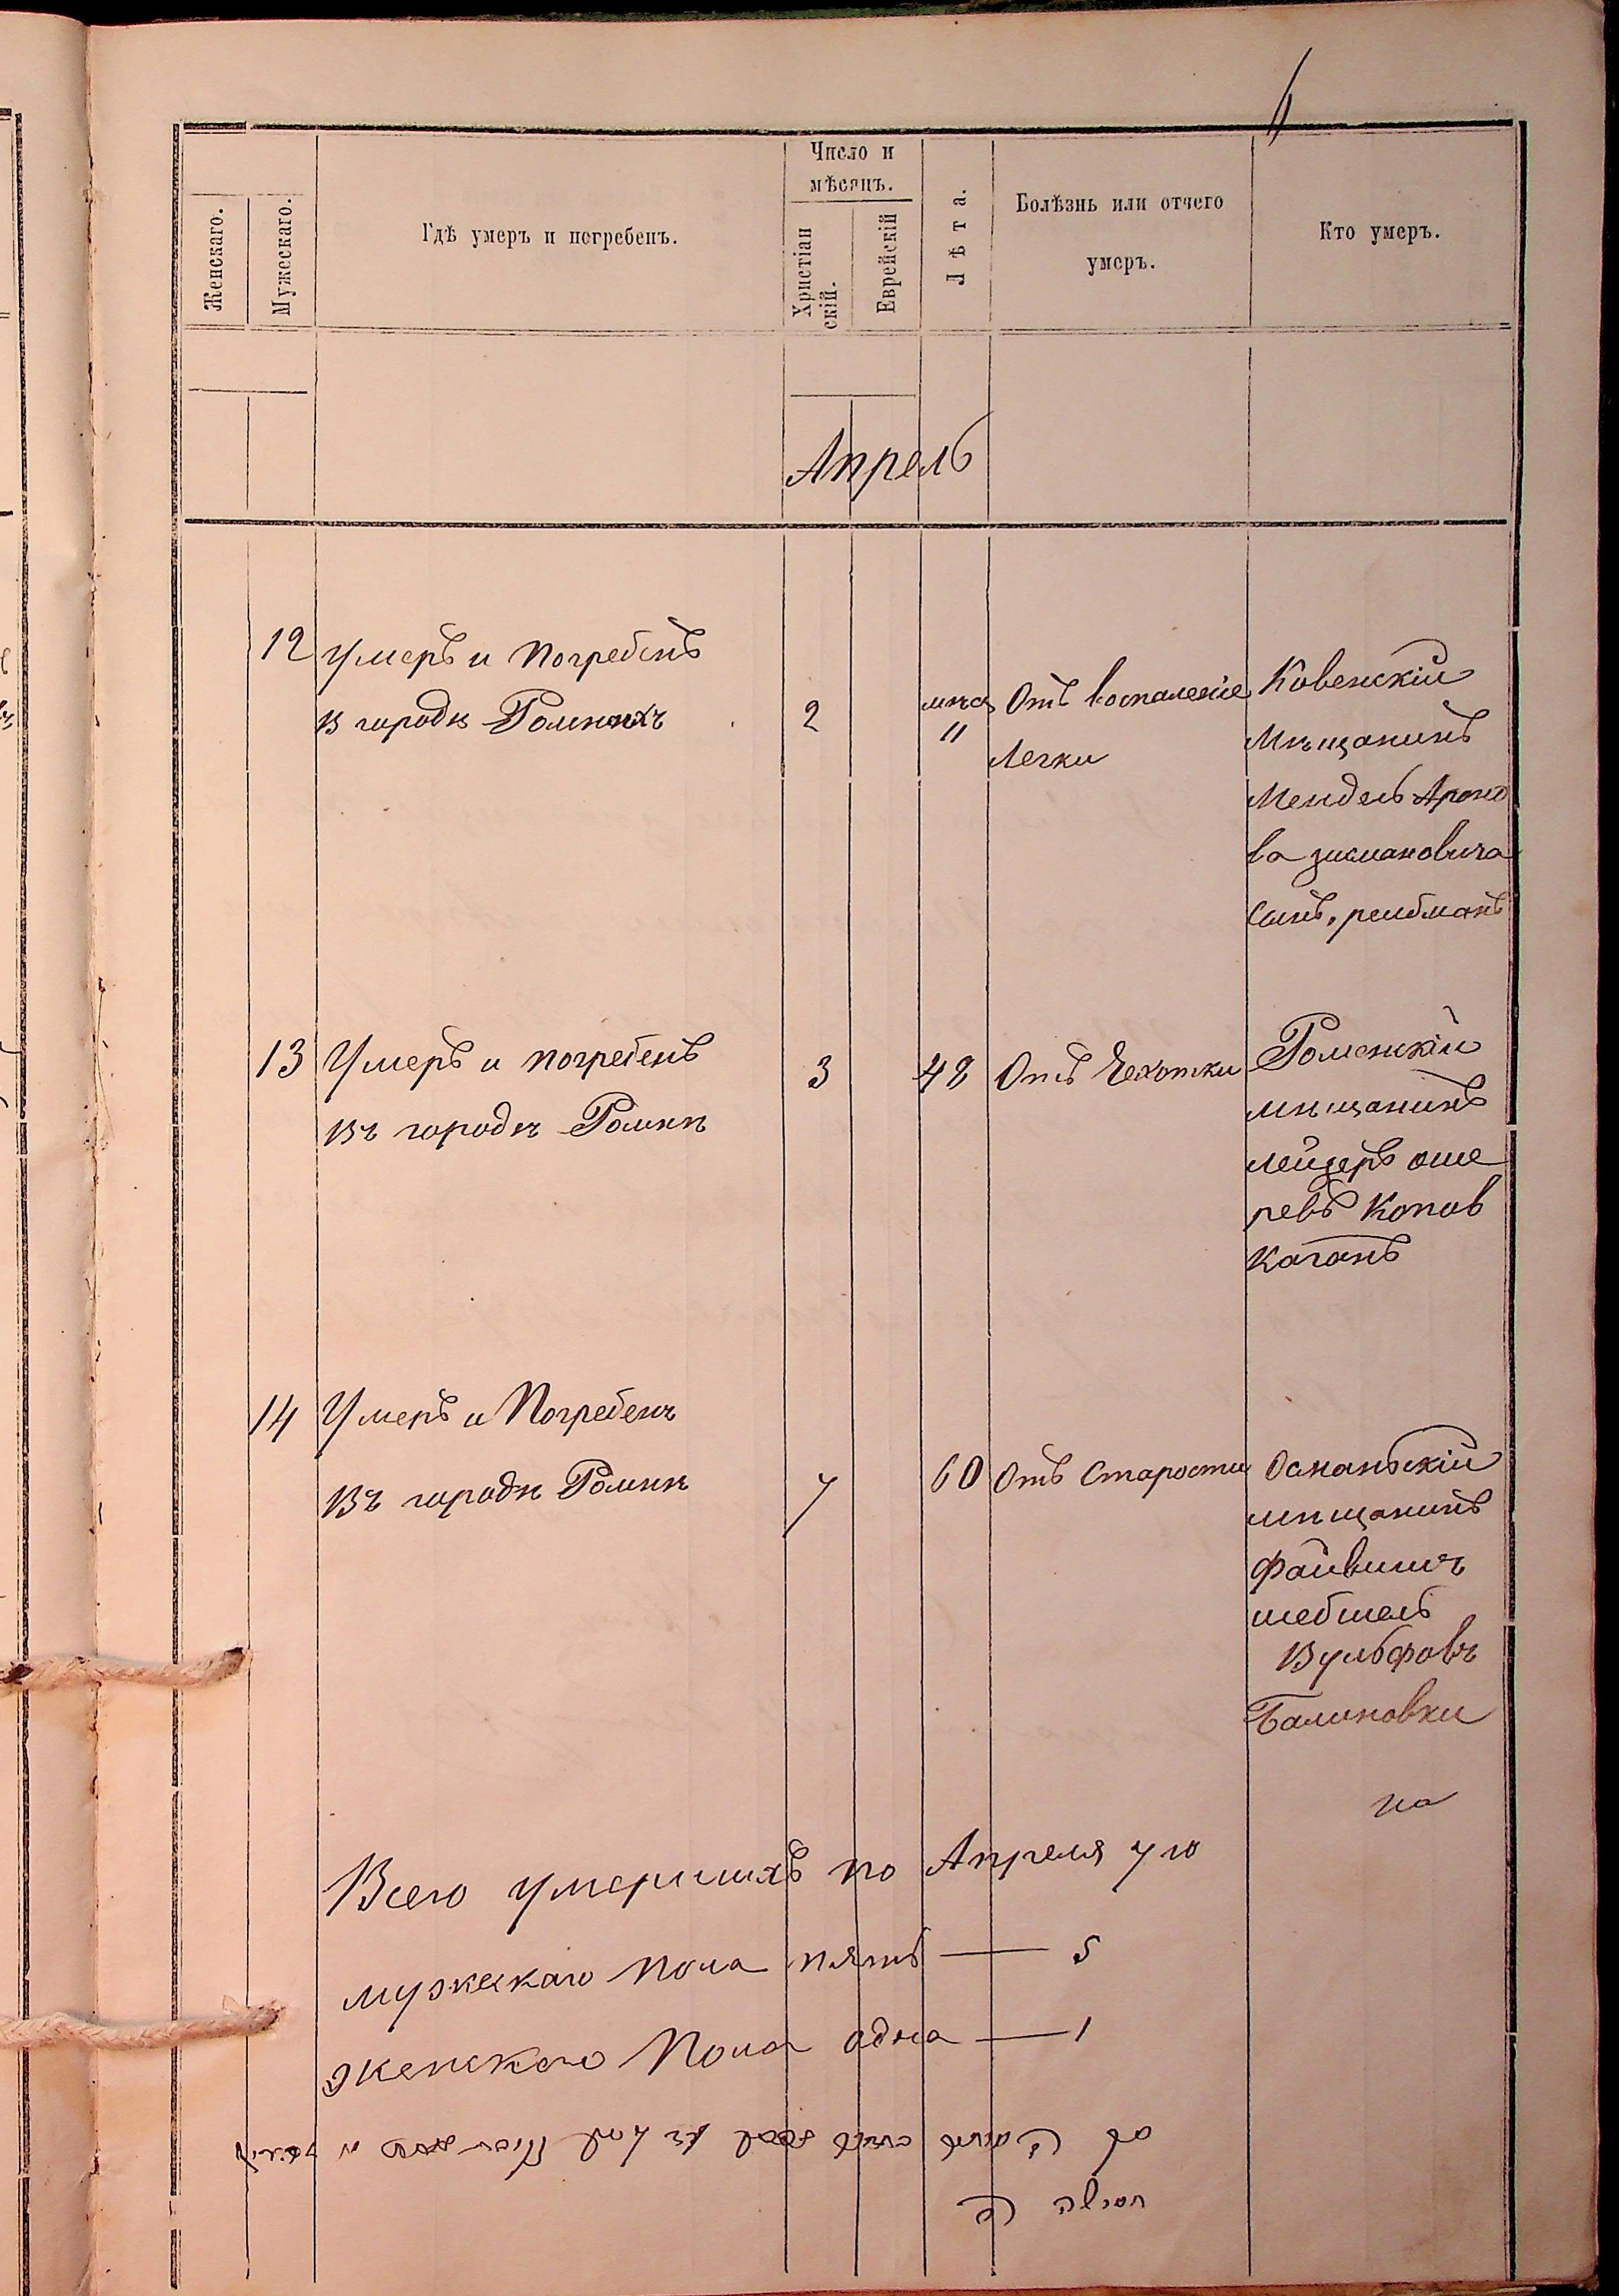 Женскаго.
Мужескаго.
Гдѣ умеръ и погребенъ.
Число и
мѣсяцъ.
Христіан
скій.
Еврейскій
Лѣта.
Болѣзнь или отчего
умеръ.
Кто умеръ.
Апрель
12 Умеръ и погребенъ
в городѣ Ромнахъ 2 мѣся 11 Отъ воспаление
Легки
Ковенскій
Мѣщанинъ
Мендель Ароно
ва зисмановича
сынъ,
13 Умеръ и погребенъ
Въ городѣ Ромнѣ 3 48 Отъ Чехотки
Роменскій
мѣщанинъ
лейзеръ оше
ревъ
Каганъ
14 Умеръ и Погребенъ
Въ городѣ Ромнѣ 7 60 Отъ Старости
мѣщанинъ
Файвишъ
шебшель
Вульфовъ
Всего умершихъ по Апреля 7 10
мужескаго пола пять — 5
женскаго Пола одна — 1